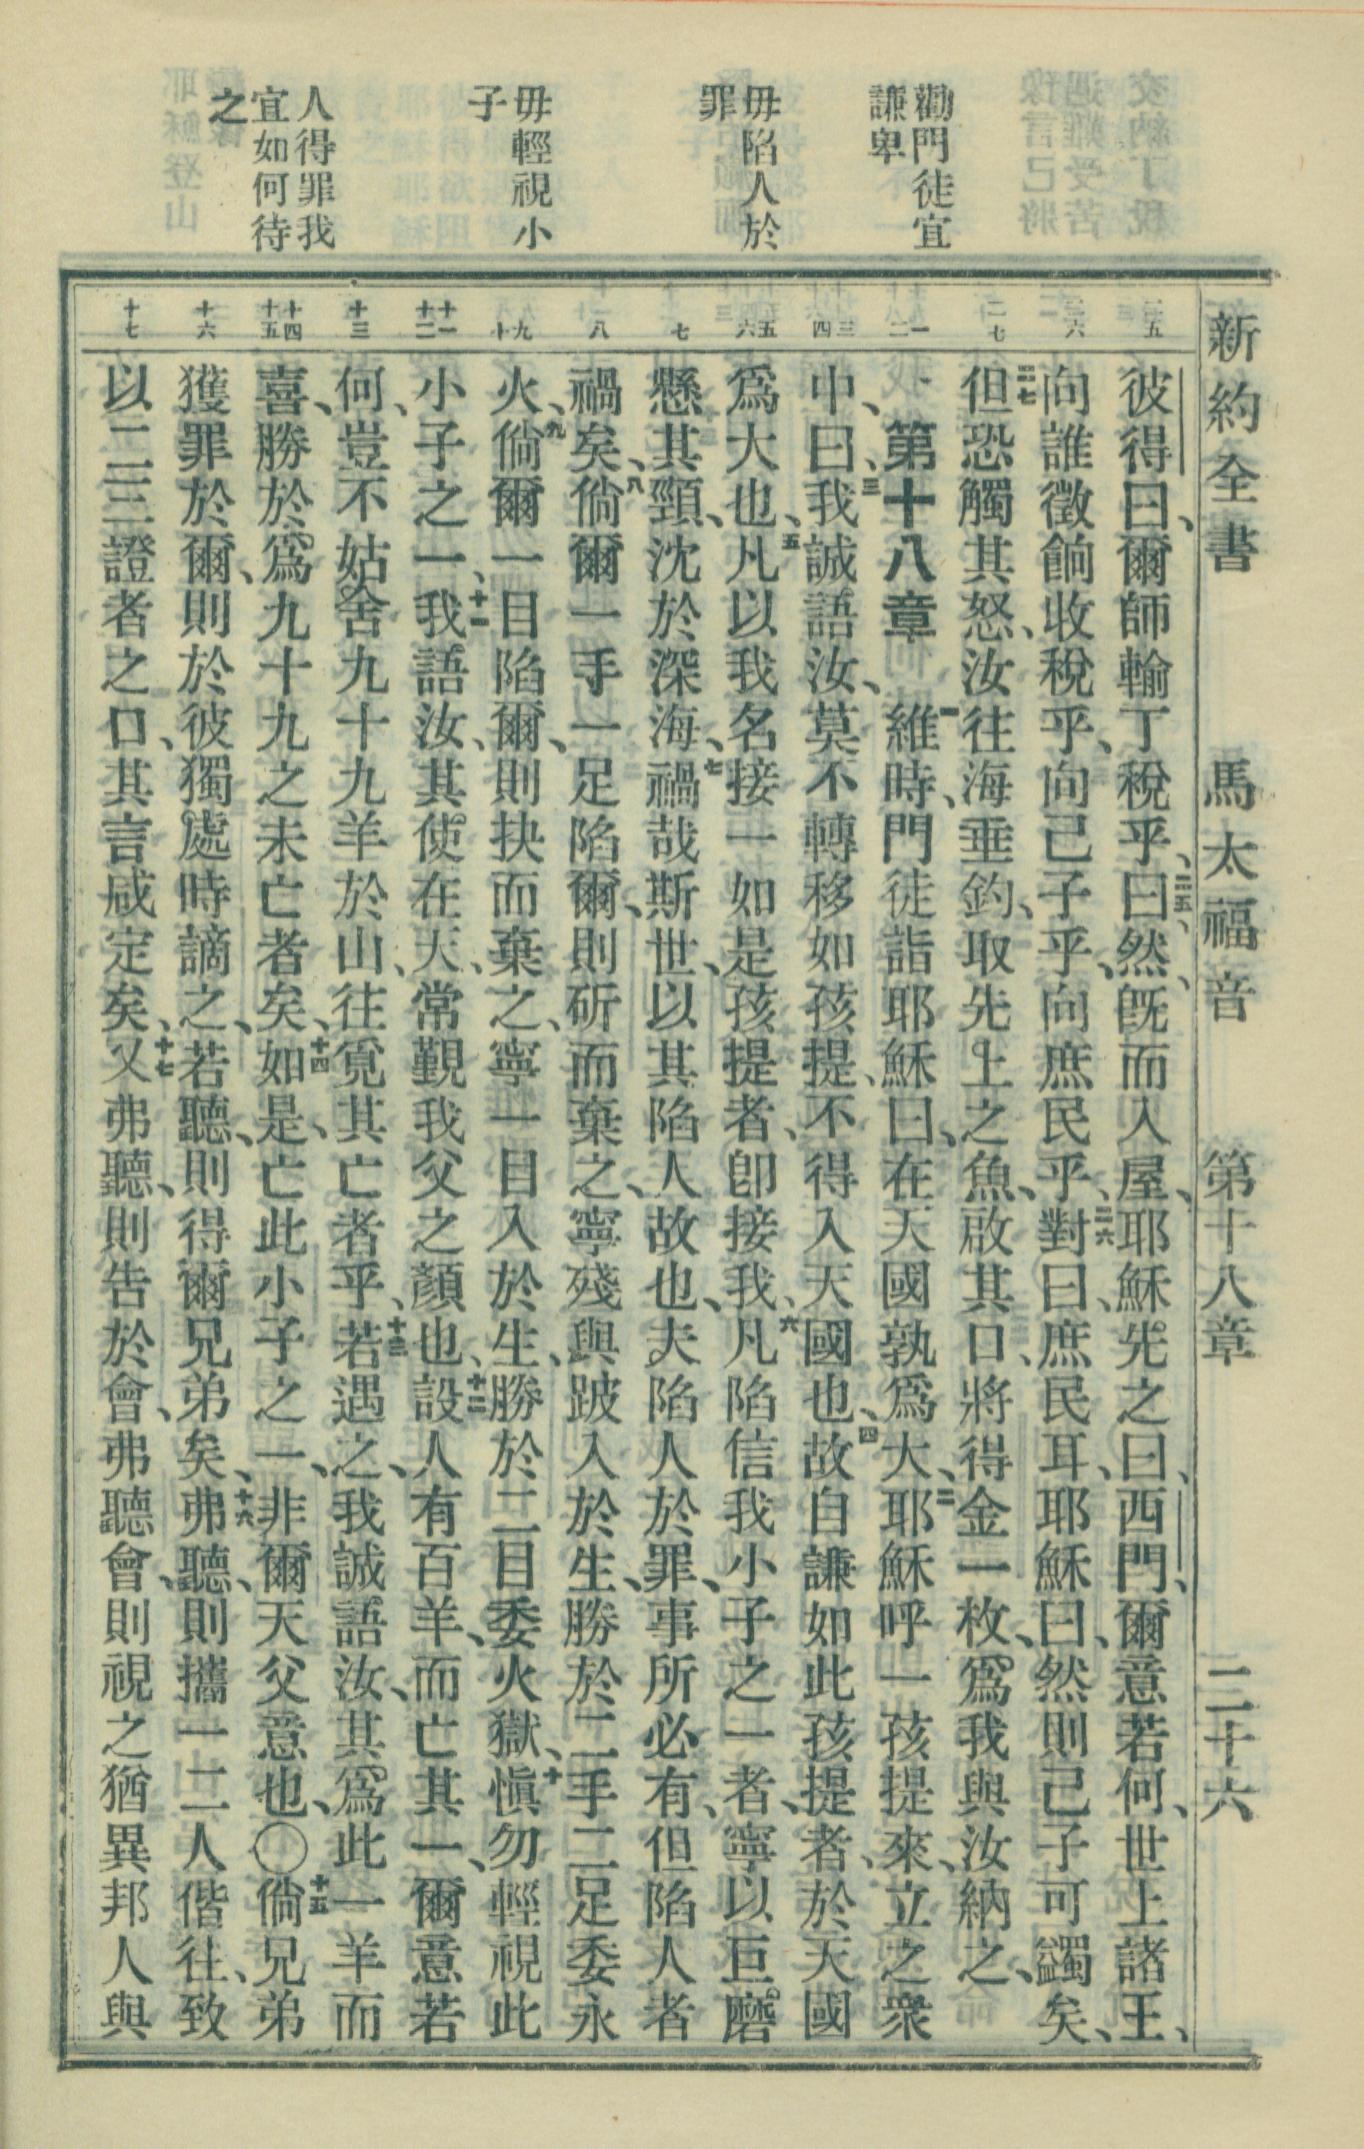 新約全書 馬太福音 第十八章 三十六
勸門徒宜
謙卑
毋陷人於
罪
毋輕視小
子
人得罪我
宜如何待
之
二五
二六
二七
一
二
三
四
五
六
七
八
九
十
十一
十二
十三
十四
十五
十六
十七
彼得曰、爾師輸丁稅乎、二五曰、然、旣而入屋、耶穌先之曰、西門、爾意若何、世上諸王、
向誰徵餉收稅乎、向己子乎、向庶民乎、二六對曰、庶民耳、耶穌曰、然則己子可蠲矣、
二七但恐觸其怒、汝往海垂釣、取先上之魚、啟其口、將得金一枚、爲我與汝納之、
第十八章 一維時、門徒詣耶穌曰、在天國孰爲大、二耶穌呼一孩提來、立之衆
中、曰、三我誠語汝、莫不轉移如孩提、不得入天國也、四故自謙如此孩提者、於天國
爲大也、五凡以我名接一如是孩提者、卽接我、六凡陷信我小子之一者、寧以巨磨
懸其頸、沈於深海、七禍哉斯世、以其陷人故也、夫陷人於罪、事所必有、但陷人者
禍矣、八倘爾一手一足陷爾、則斫而棄之、寧殘與跛入於生、勝於二手二足委永
火、九倘爾一目陷爾、則抉而棄之、寧一目入於生、勝於二目委火獄、十愼勿輕視此
小子之一、十一我語汝、其使在天、常覲我父之顏也、十二設人有百羊、而亡其一、爾意若
何、豈不姑舍九十九羊於山、往覓其亡者乎、十三若遇之、我誠語汝、其爲此一羊而
喜、勝於爲九十九之未亡者矣、十四如是、亡此小子之一、非爾天父意也、〇十五倘兄弟
獲罪於爾、則於彼獨處時謫之、若聽、則得爾兄弟矣、十六弗聽、則攜一二人偕往、致
以二三證者之口、其言咸定矣、十七又弗聽、則告於會、弗聽會、則視之猶異邦人與